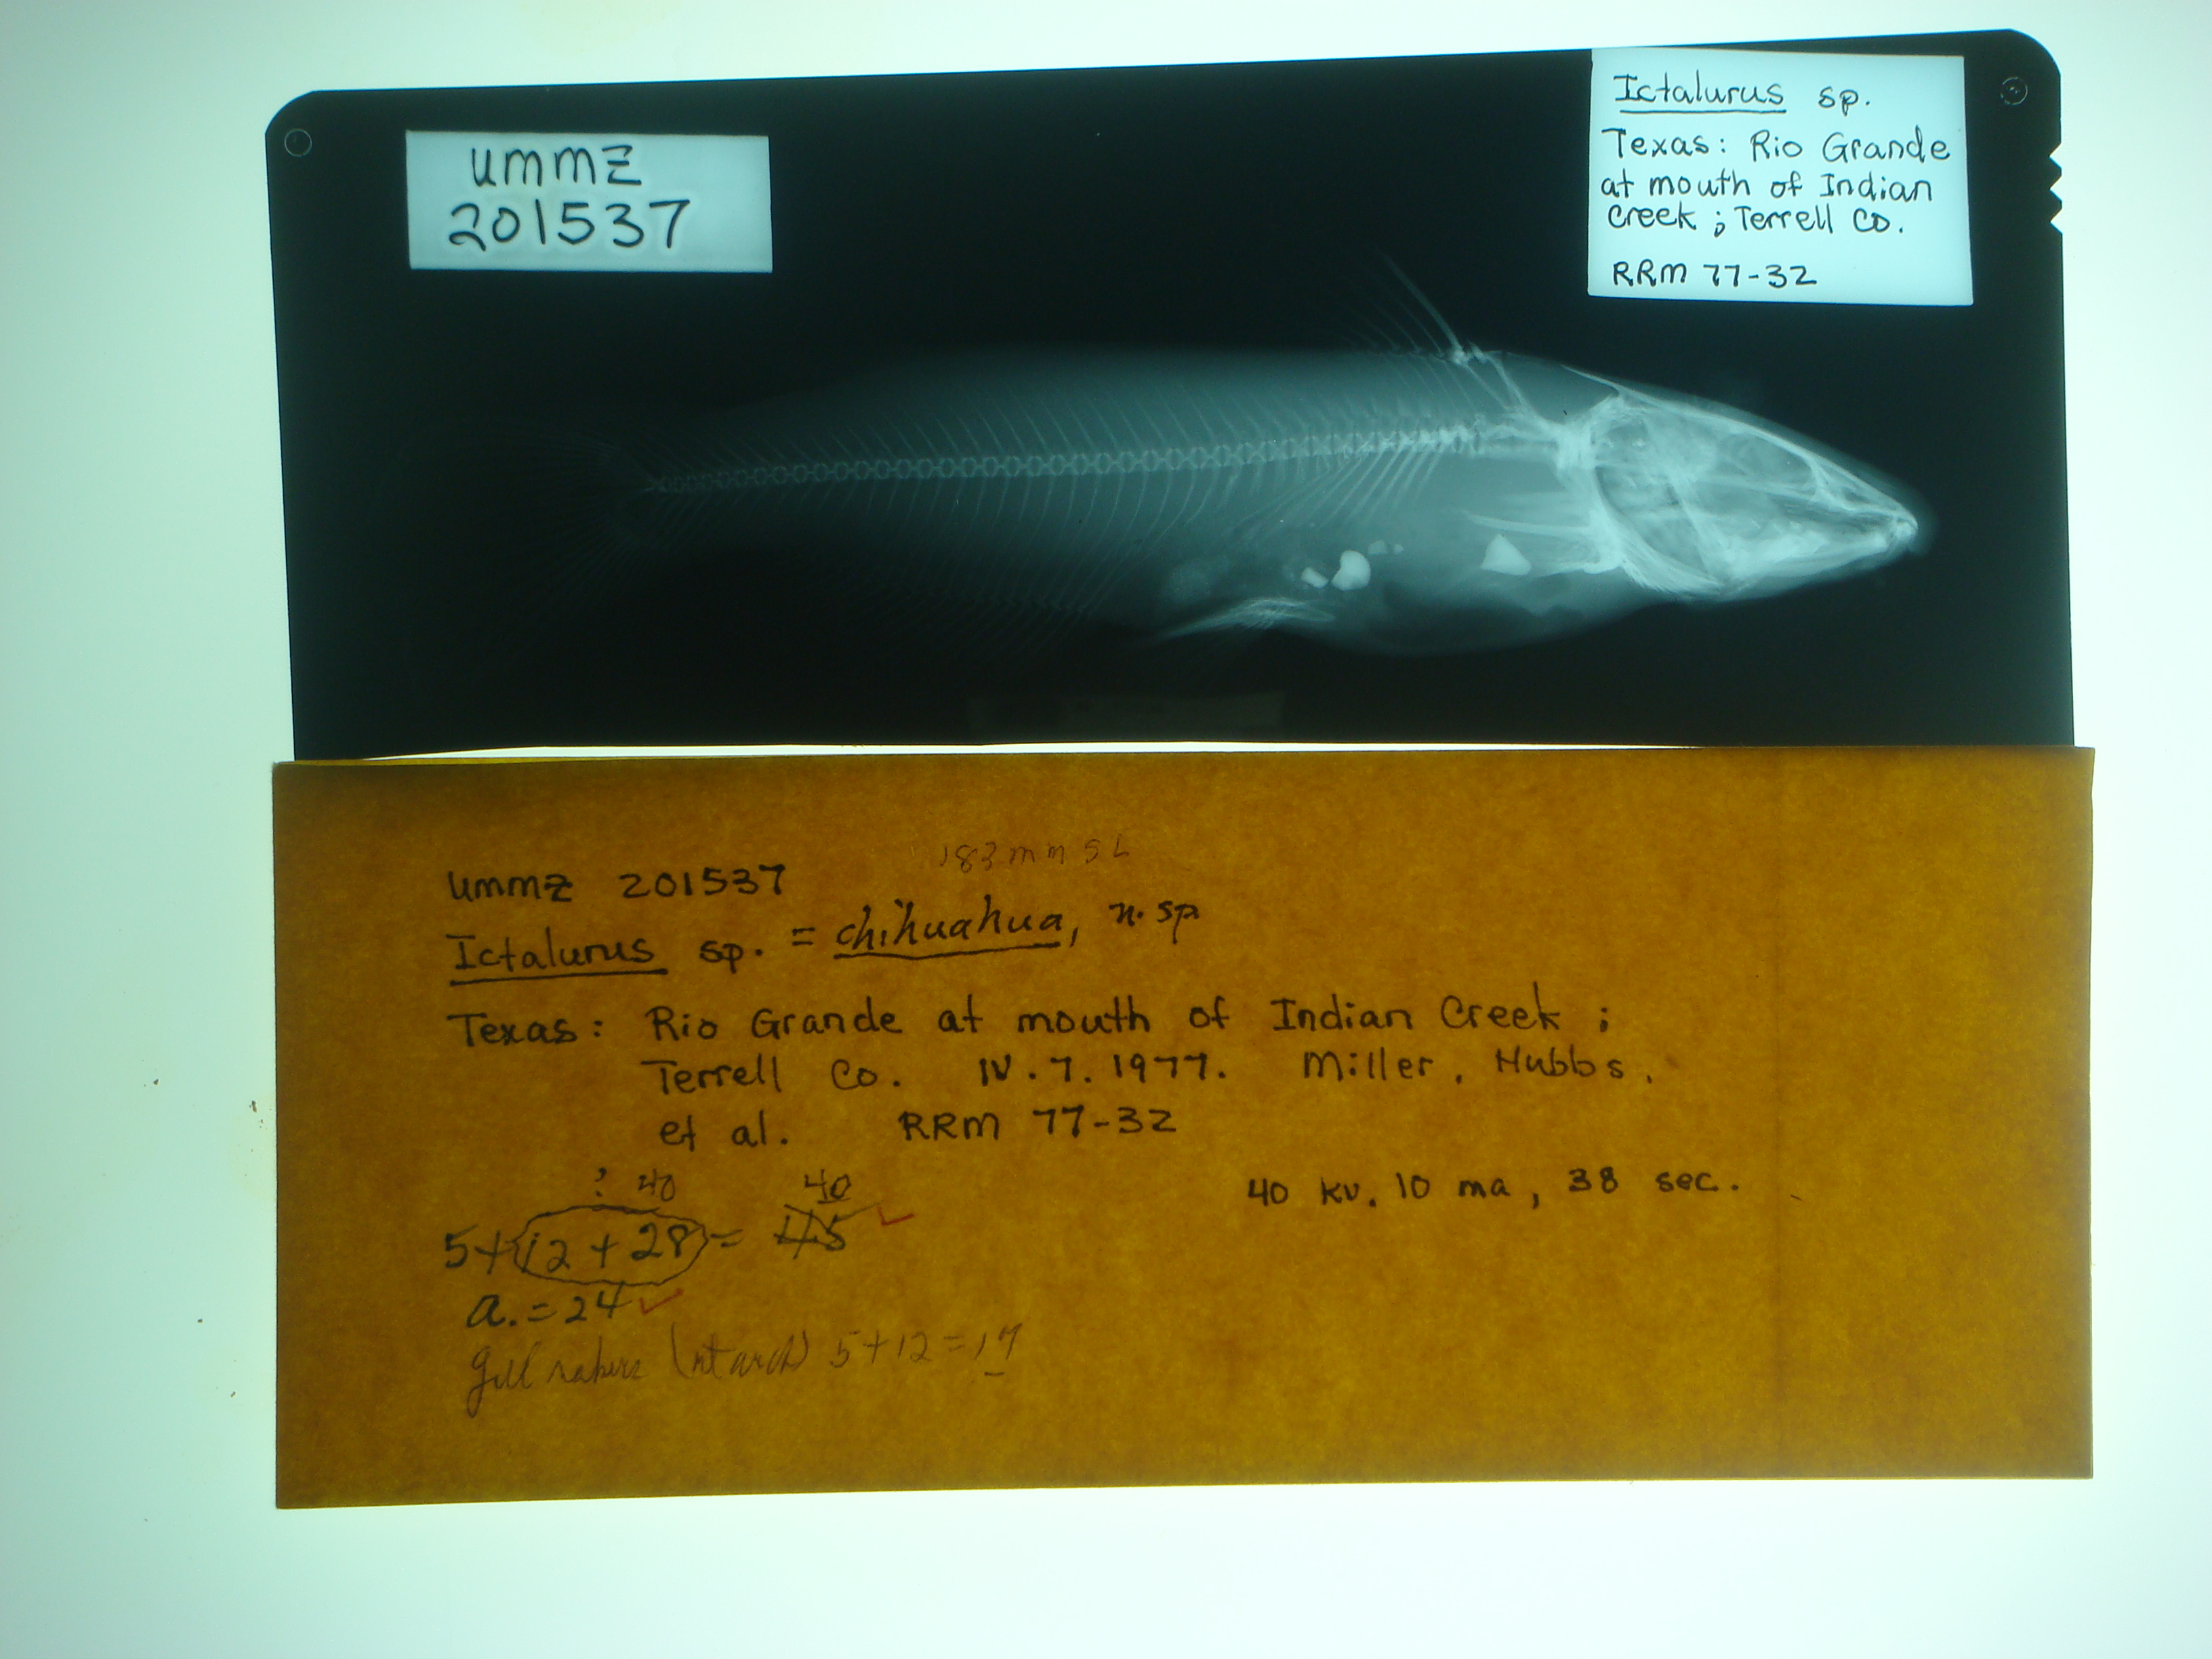 UMMZ
201537
Ictalurus sp.
Texas: Rio Grande
at mouth of Indian
Creek; Terrell Co.
RRM 77-32
183 mm SL
UMMZ 201537
Ictalurus sp. = chihuahua, n. sp
Texas: Rio Grande at mouth of Indian Creek;
Terrell Co. IV.7.1977. Miller, Hubbs,
et al. RRM 77-32
? 40 40
40 kv. 10 ma, 38 sec.
5+12+28= 45 ✓
a.=24 ✓
Gill rakers (nt arch) 5+12=17